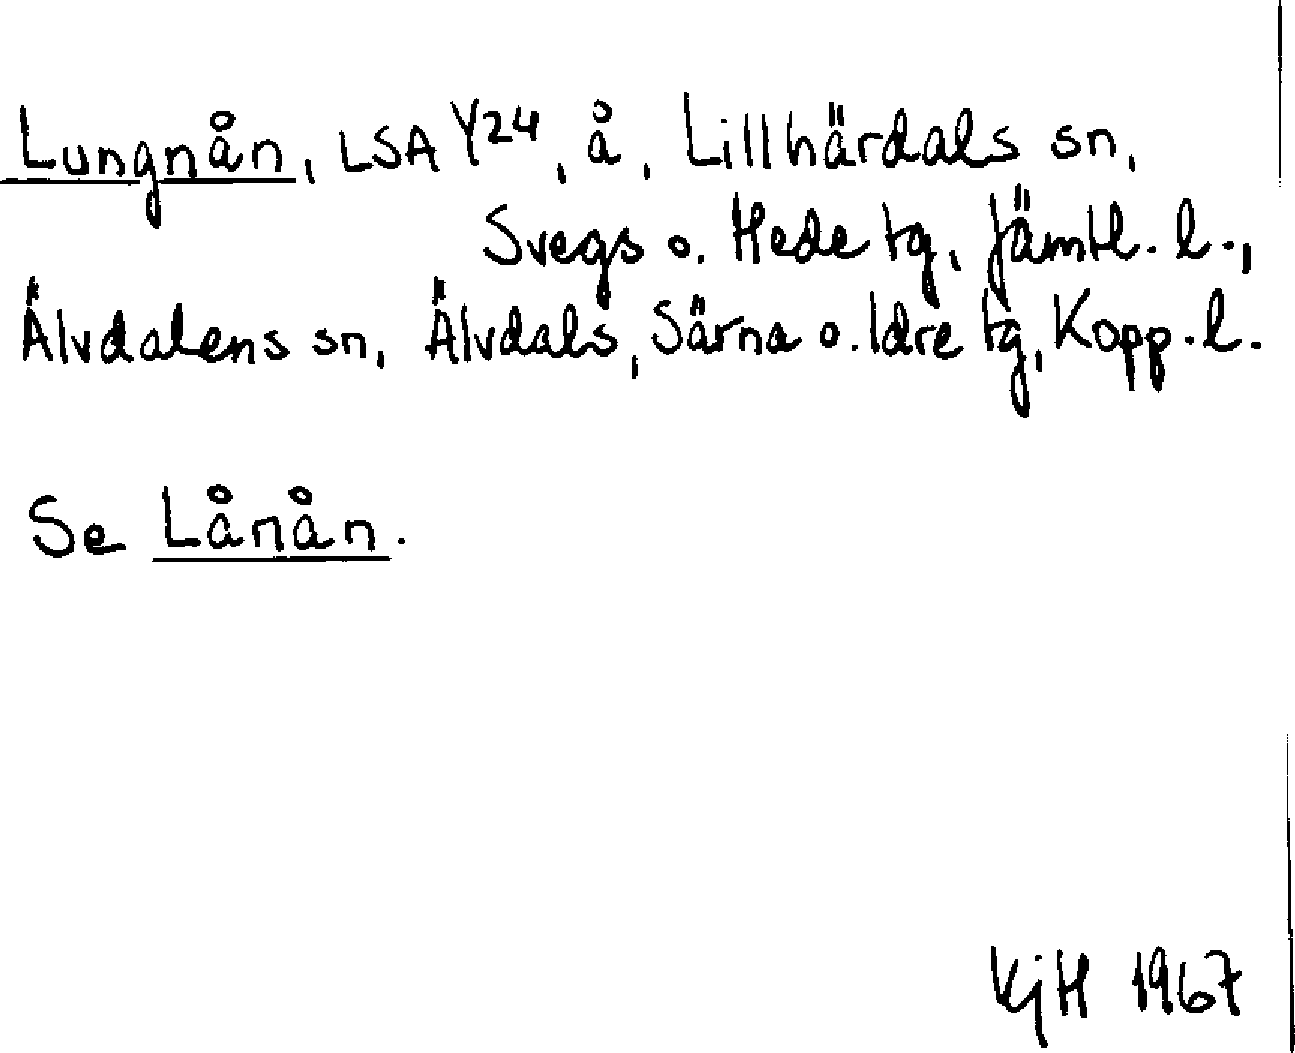 Lungnån, LSA Y24, å, Lillhärdals sn,
Svegs o. Hede tg, Jämtl. l.,
Älvdalens sn, Älvdals, Särna o. Idre tg, Kopp. l.
Se Lånån.
KjH 1967